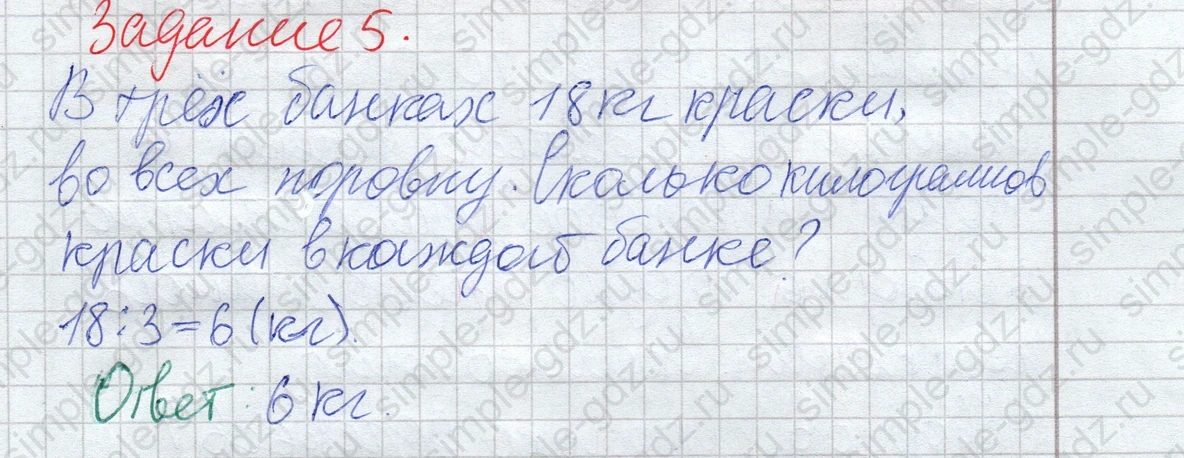 Задание 5.
В трёх банках 18 кг краски,
во всех поровну. Сколько килограммов
краски в каждой банке?
18:3=6 (кг).
Ответ: 6 кг.
simple-gdz.ru